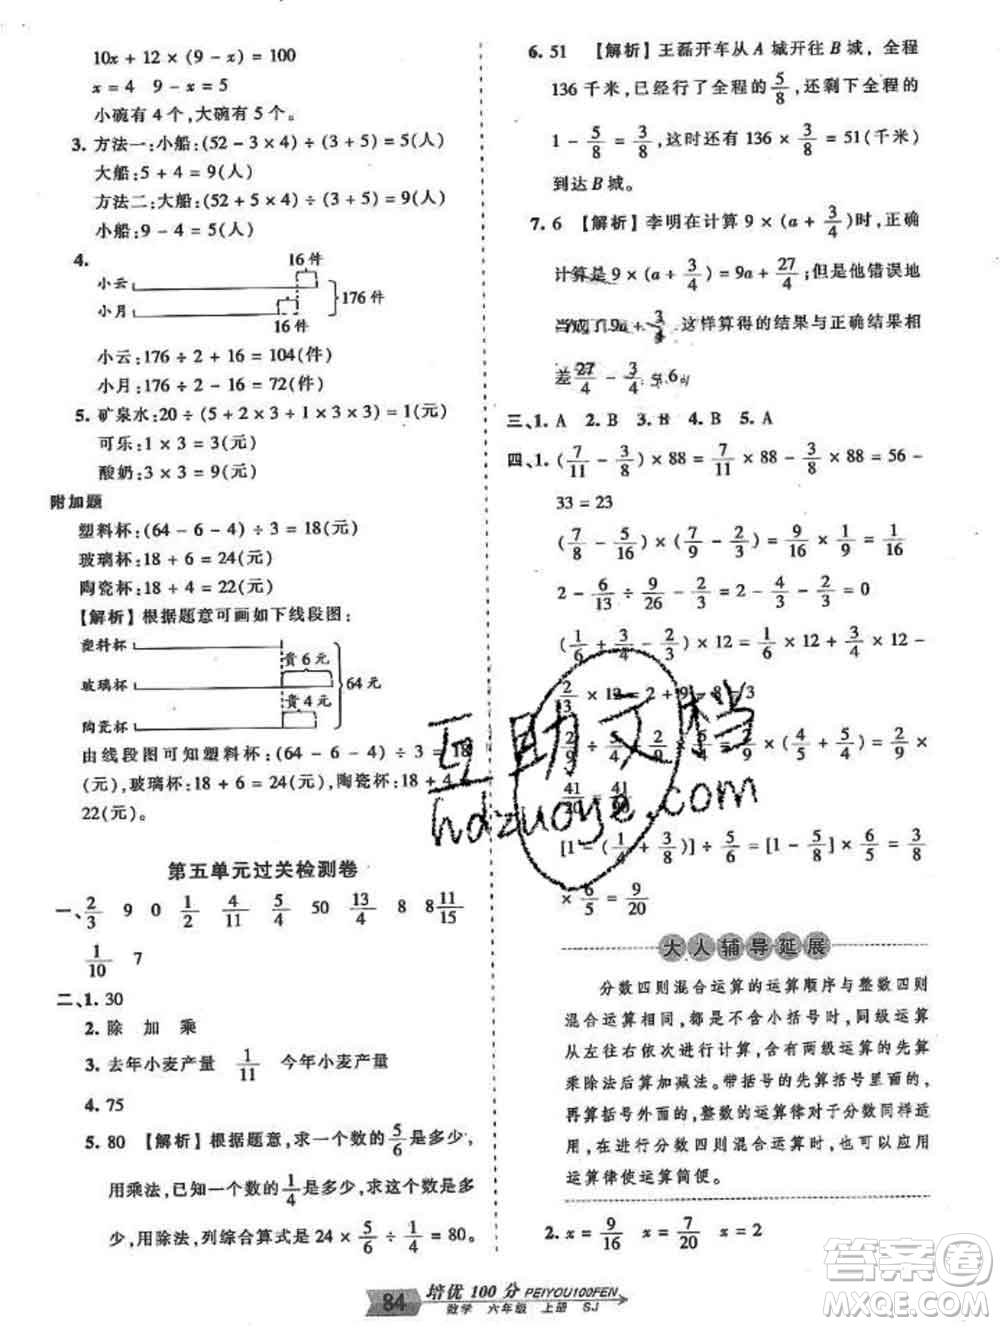 10x + 12 × (9 - x) = 100
x = 4   9 - x = 5
小碗有 4 个,大碗有 5 个。
3. 方法一:小船:(52 - 3 × 4) ÷ (3 + 5) = 5(人)
大船:5 + 4 = 9(人)
方法二:大船:(52 + 5 × 4) ÷ (3 + 5) = 9(人)
小船:9 - 4 = 5(人)
4.
16 件
小云
176 件
小月
16 件
小云:176 ÷ 2 + 16 = 104(件)
小月:176 ÷ 2 - 16 = 72(件)
5. 矿泉水:20 ÷ (5 + 2 × 3 + 1 × 3 × 3) = 1(元)
可乐:1 × 3 = 3(元)
酸奶:3 × 3 = 9(元)
附加题
塑料杯:(64 - 6 - 4) ÷ 3 = 18(元)
玻璃杯:18 + 6 = 24(元)
陶瓷杯:18 + 4 = 22(元)
【解析】根据题意可画如下线段图:
塑料杯
贵 6 元
玻璃杯
64 元
贵 4 元
陶瓷杯
由线段图可知塑料杯:(64 - 6 - 4) ÷ 3 = 18
(元),玻璃杯:18 + 6 = 24(元),陶瓷杯:18 + 4 =
22(元)。
第五单元过关检测卷
一、2/3   9   0   1/2   4/11   5/4   50   13/4   8   8 11/15
1/10   7
二、1. 30
2. 除   加   乘
3. 去年小麦产量   1/11   今年小麦产量
4. 75
5. 80   【解析】根据题意,求一个数的5/6是多少,
用乘法,已知一个数的1/4是多少,求这个数是多
少,用除法,列综合算式是 24 × 5/6 ÷ 1/4 = 80。
6. 51   【解析】王磊开车从 A 城开往 B 城,全程
136 千米,已经行了全程的5/8,还剩下全程的
1 - 5/8 = 3/8,这时还有 136 × 3/8 = 51(千米)
到达 B 城。
7. 6   【解析】李明在计算 9 × (a + 3/4)时,正确
计算是 9 × (a + 3/4) = 9a + 27/4;但是他错误地
当成了 9a + 3/4,这样算得的结果与正确结果相
差27/4 - 3/4 = 6。
三、1. A   2. B   3. B   4. B   5. A
四、1. (7/11 - 3/8) × 88 = 7/11 × 88 - 3/8 × 88 = 56 -
33 = 23
(7/8 - 5/16) × (7/9 - 2/3) = 9/16 × 1/9 = 1/16
2 - 6/13 ÷ 9/26 - 2/3 = 2 - 4/3 - 2/3 = 0
(1/6 + 3/4 - 2/3) × 12 = 1/6 × 12 + 3/4 × 12 -
2/3 × 12 = 2 + 9 - 8 = 3
× (4/5 + 5/4) = 2/9 ×
41/20 = 41/
[1 - (1/4 + 3/8)] ÷ 5/6 = [1 - 5/8] × 6/5 = 3/8
× 6/5 = 9/20
大人辅导延展
分数四则混合运算的运算顺序与整数四则
混合运算相同,都是不含小括号时,同级运算
从左往右依次进行计算,含有两级运算的先算
乘除法后算加减法。带括号的先算括号里面的,
再算括号外面的,整数的运算律对于分数同样适
用,在进行分数四则混合运算时,也可以应用
运算律使运算简便。
2. x = 9/16   x = 7/20   x = 2
84   培优 100 分 PEIYOU100FEN
数学   六年级   上册   SJ
互助文档
hdzuoye.com
答案圈
MXQE.COM